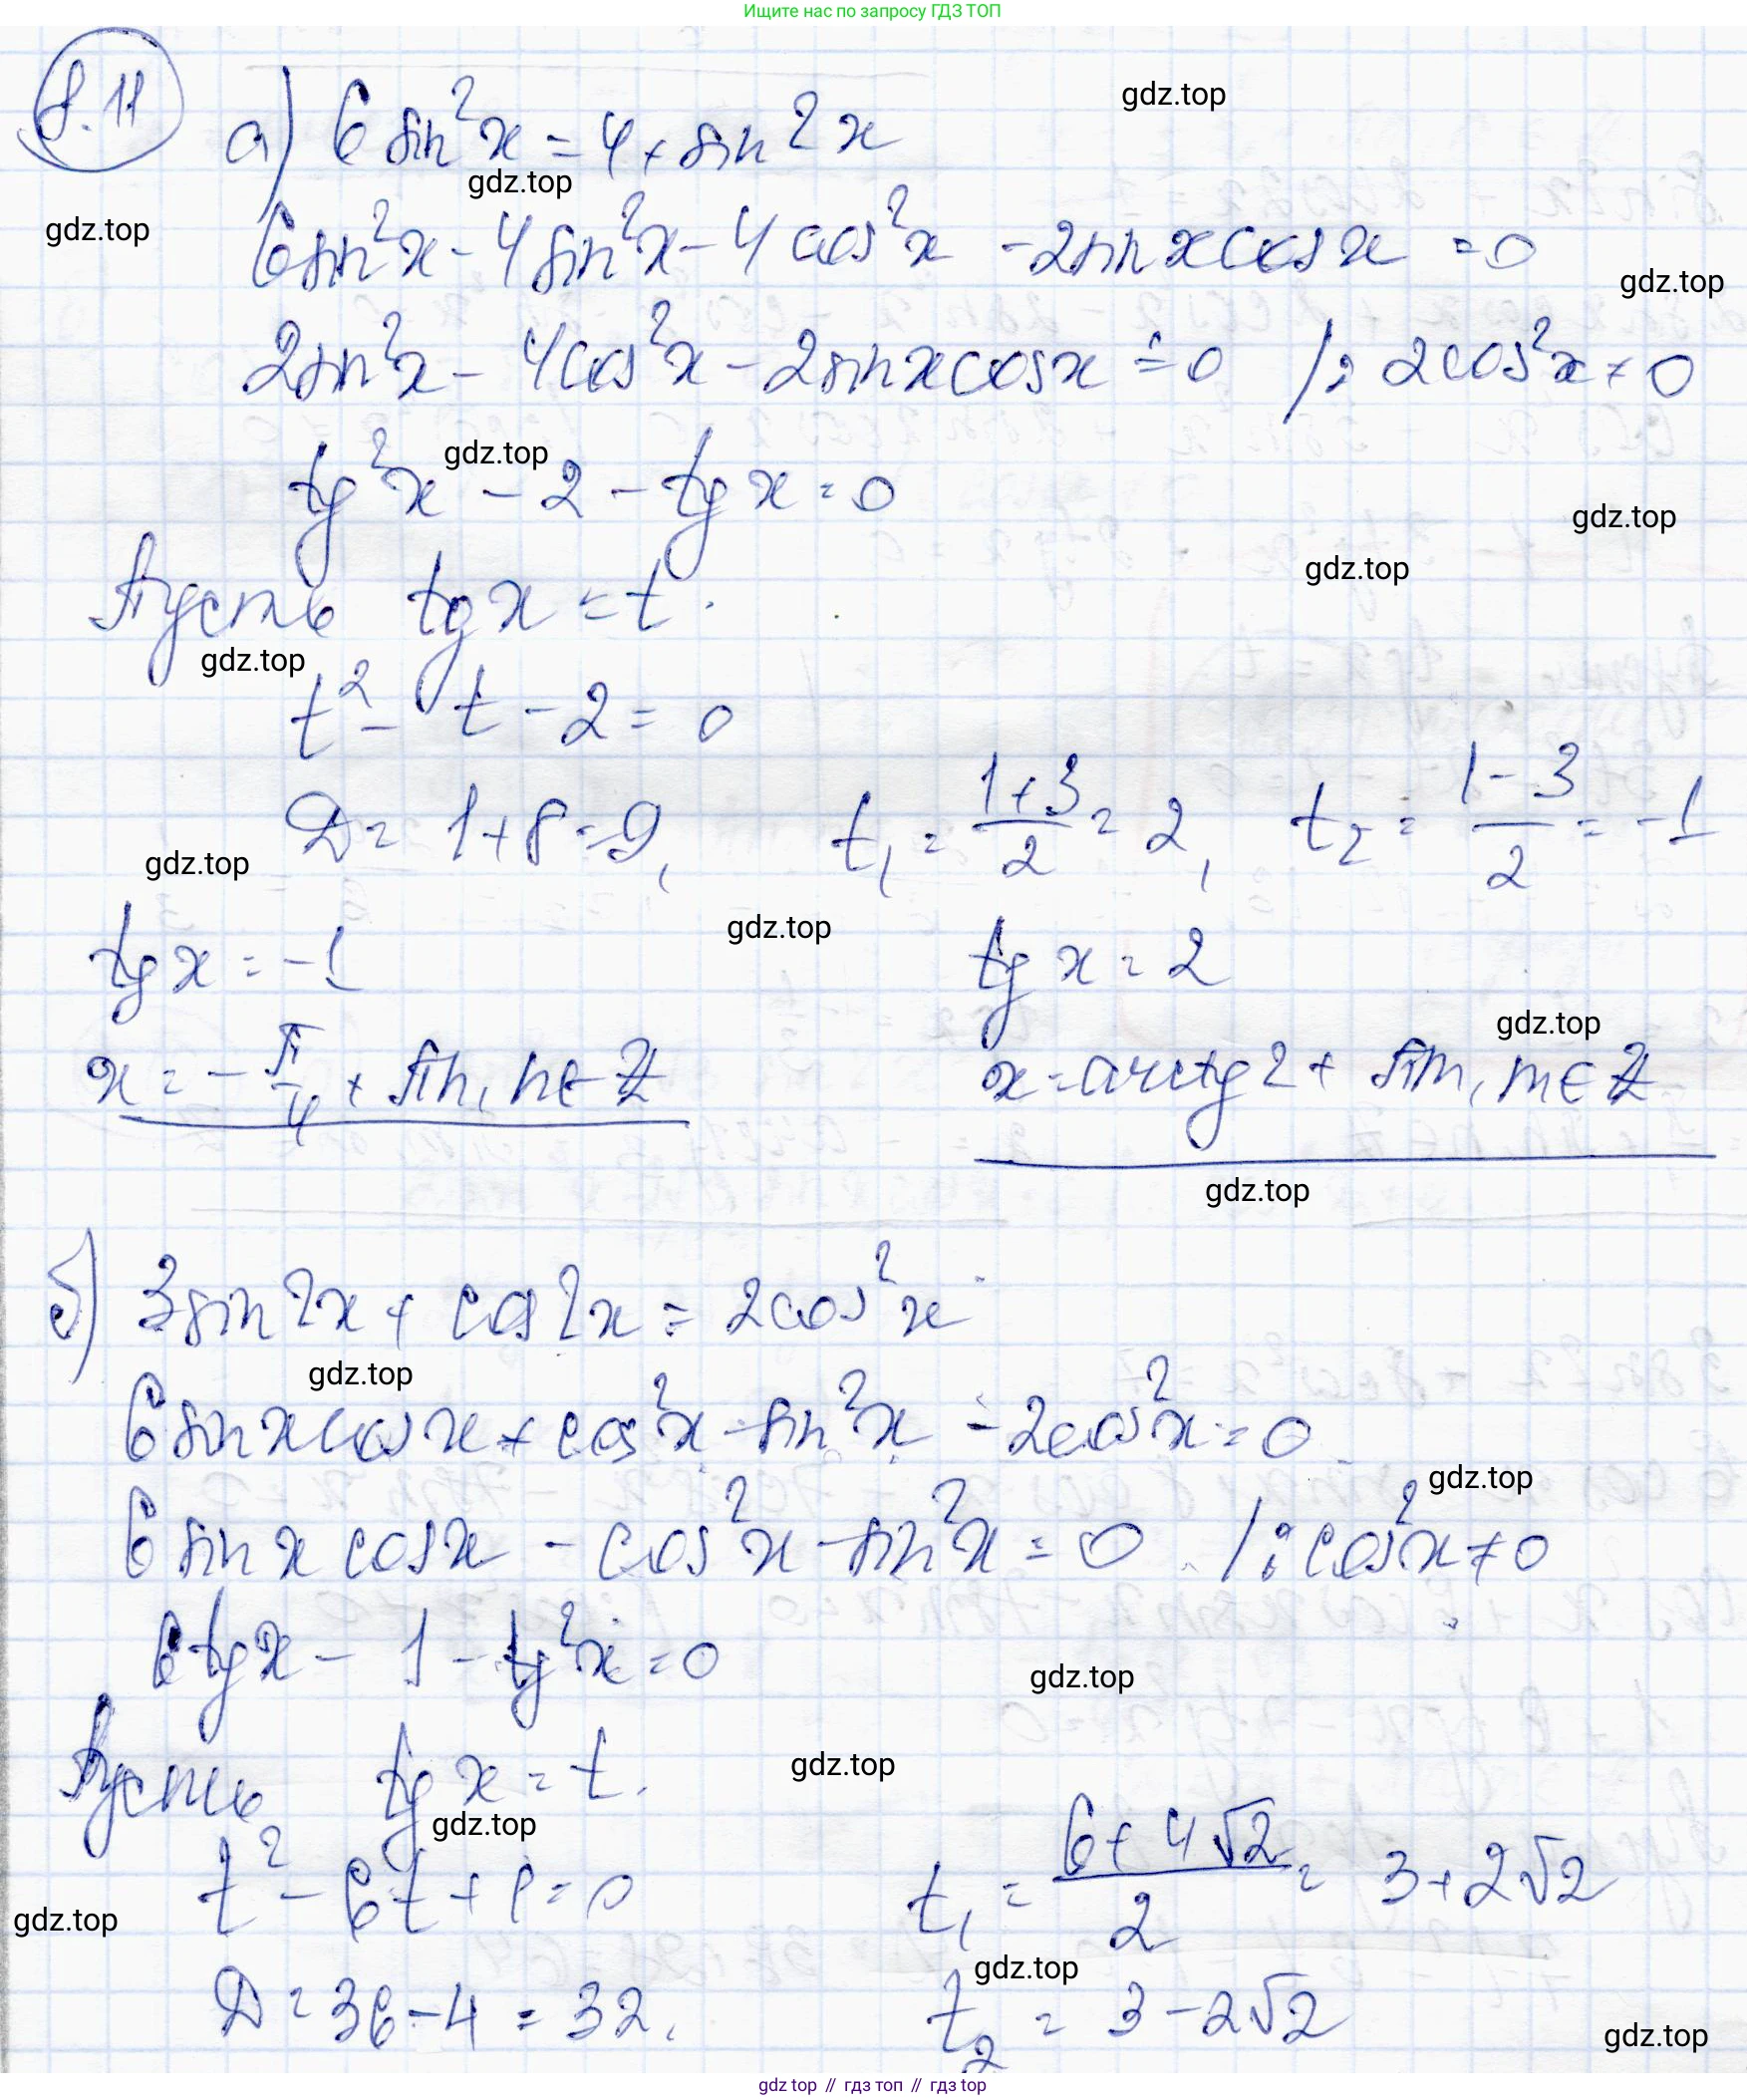 Ищите нас по запросу ГДЗ ТОП
8.11
а) 6 sin²x = 4 + sin 2x
gdz.top
gdz.top
gdz.top
6sin²x - 4sin²x - 4cos²x - 2sinxcosx = 0
gdz.top
2sin²x - 4cos²x - 2sinxcosx = 0 /: 2cos²x ≠ 0
gdz.top
tg²x - 2 - tgx = 0
gdz.top
gdz.top
Пусть tgx = t.
gdz.top
t² - t - 2 = 0
D = 1+8 = 9, t₁ = (1+3)/2 = 2, t₂ = (1-3)/2 = -1
gdz.top
gdz.top
tgx = -1 tgx = 2
gdz.top
x = -π/4 + πn, n∈Z x = arctg2 + πm, m∈Z
gdz.top
б) 3sin2x + cos2x = 2cos²x
gdz.top
6sinxcosx + cos²x - sin²x - 2cos²x = 0
gdz.top
6sinxcosx - cos²x - sin²x = 0 /: cos²x ≠ 0
6tgx - 1 - tg²x = 0
gdz.top
Пусть tgx = t.
gdz.top
gdz.top
t² - 6t + 1 = 0 t₁ = (6+4√2)/2 = 3+2√2
gdz.top
gdz.top
D = 36-4 = 32, t₂ = 3-2√2
gdz.top
gdz top // гдз топ // гдз top